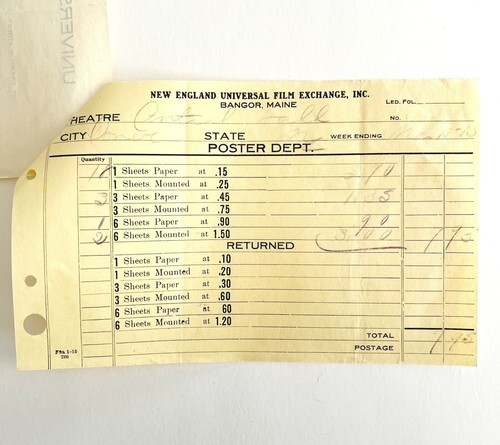 UNIVERS
NEW ENGLAND UNIVERSAL FILM EXCHANGE, INC.
BANGOR, MAINE
LED. FOL.
HEATRE Central Hall No.
CITY STATE WEEK ENDING
POSTER DEPT.
Quantity
1 Sheets Paper at .15
1 Sheets Mounted at .25
3 3 Sheets Paper at .45
3 Sheets Mounted at .75
1 6 Sheets Paper at .90 90
2 6 Sheets Mounted at 1.50 3.00
RETURNED
1 Sheets Paper at .10
1 Sheets Mounted at .20
3 Sheets Paper at .30
3 Sheets Mounted at .60
6 Sheets Paper at 60
6 Sheets Mounted at 1.20
TOTAL
POSTAGE